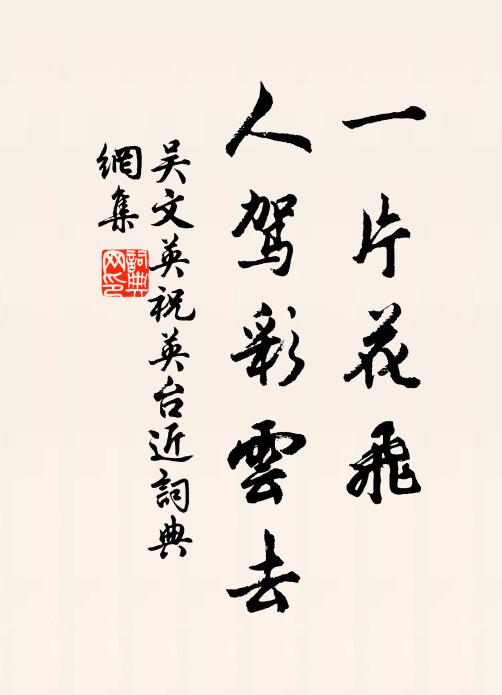 一片花飛
人驾彩雲去
吴文英祝英台近詞典
網集
詞典
网印